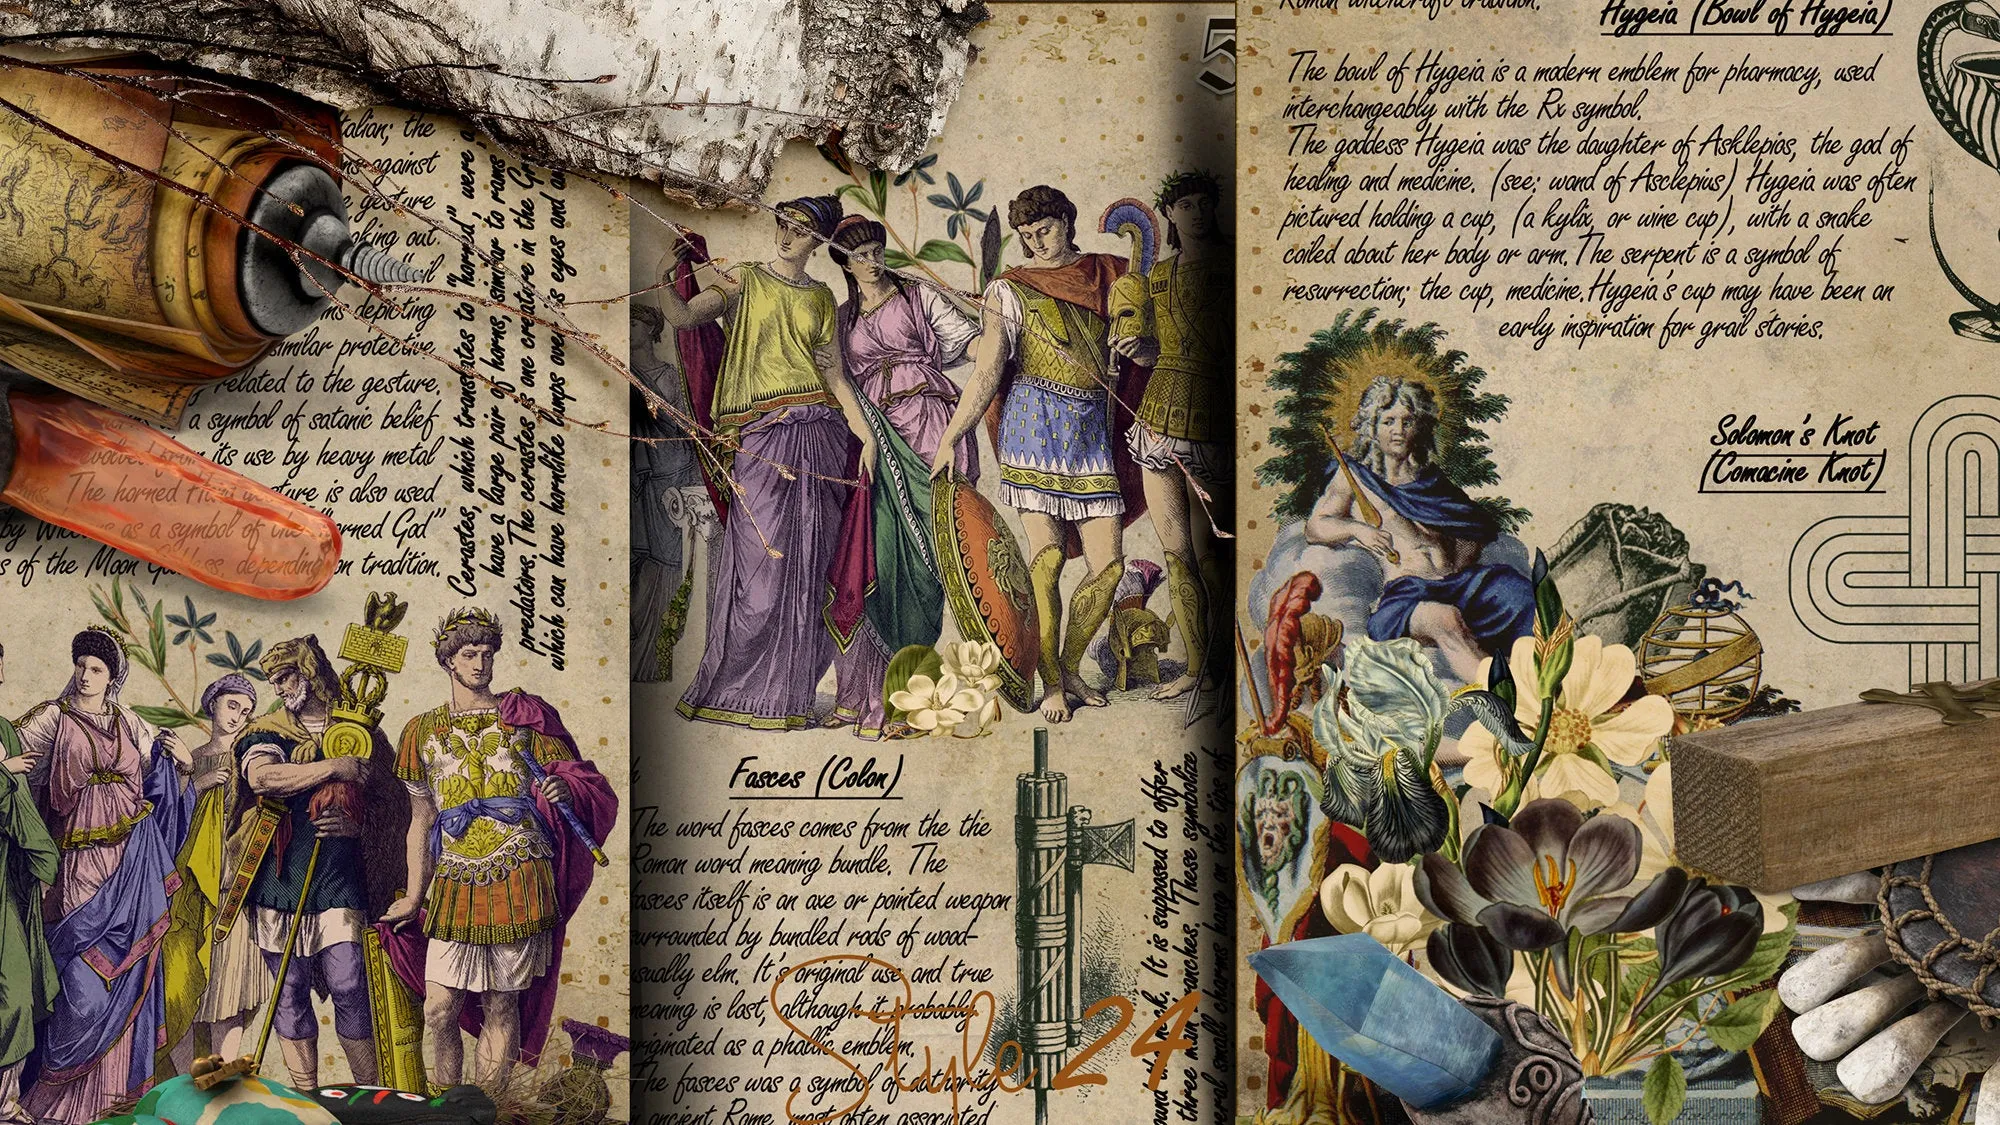 Italian; the
against
gesture
oking out.
depicting
similar protective
related to the gesture.
a symbol of satanic belief
evolved from its use by heavy metal
The horned Hand gesture is also used
by as a symbol of the "Horned God"
s of the Moon Goddess, depending on tradition.
Cerastes, which translates to "horned", were
have a large pair of horns, similar to rams
predators. The cerastes is one creature in the
which can have hornlike lumps over its eyes and
5
Fasces (Colon)
The word fasces comes from the the
Roman word meaning bundle. The
fasces itself is an axe or pointed weapon
surrounded by bundled rods of wood-
usually elm. It's original use and true
meaning is lost, although it probably
originated as a phallic emblem.
The fasces was a symbol of authority
in ancient Rome, most often associated
Style 24
It is supposed to offer
three main branches. These symbolize
several small charms hang on the tips of
Roman witchcraft tradition.
Hygeia (Bowl of Hygeia)
The bowl of Hygeia is a modern emblem for pharmacy, used
interchangeably with the Rx symbol.
The goddess Hygeia was the daughter of Asklepios, the god of
healing and medicine. (see: wand of Asclepius) Hygeia was often
pictured holding a cup, (a kylix, or wine cup), with a snake
coiled about her body or arm. The serpent is a symbol of
resurrection; the cup, medicine. Hygeia's cup may have been an
early inspiration for grail stories.
Solomon's Knot
(Comacine Knot)